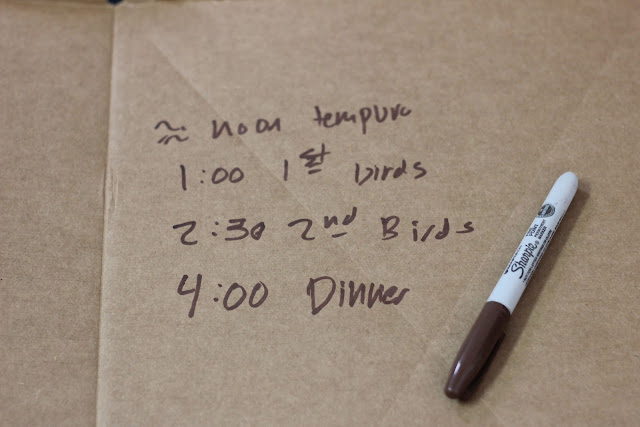 ≈ noon tempura
1:00 1st birds
2:30 2nd Birds
4:00 Dinner
Sharpie